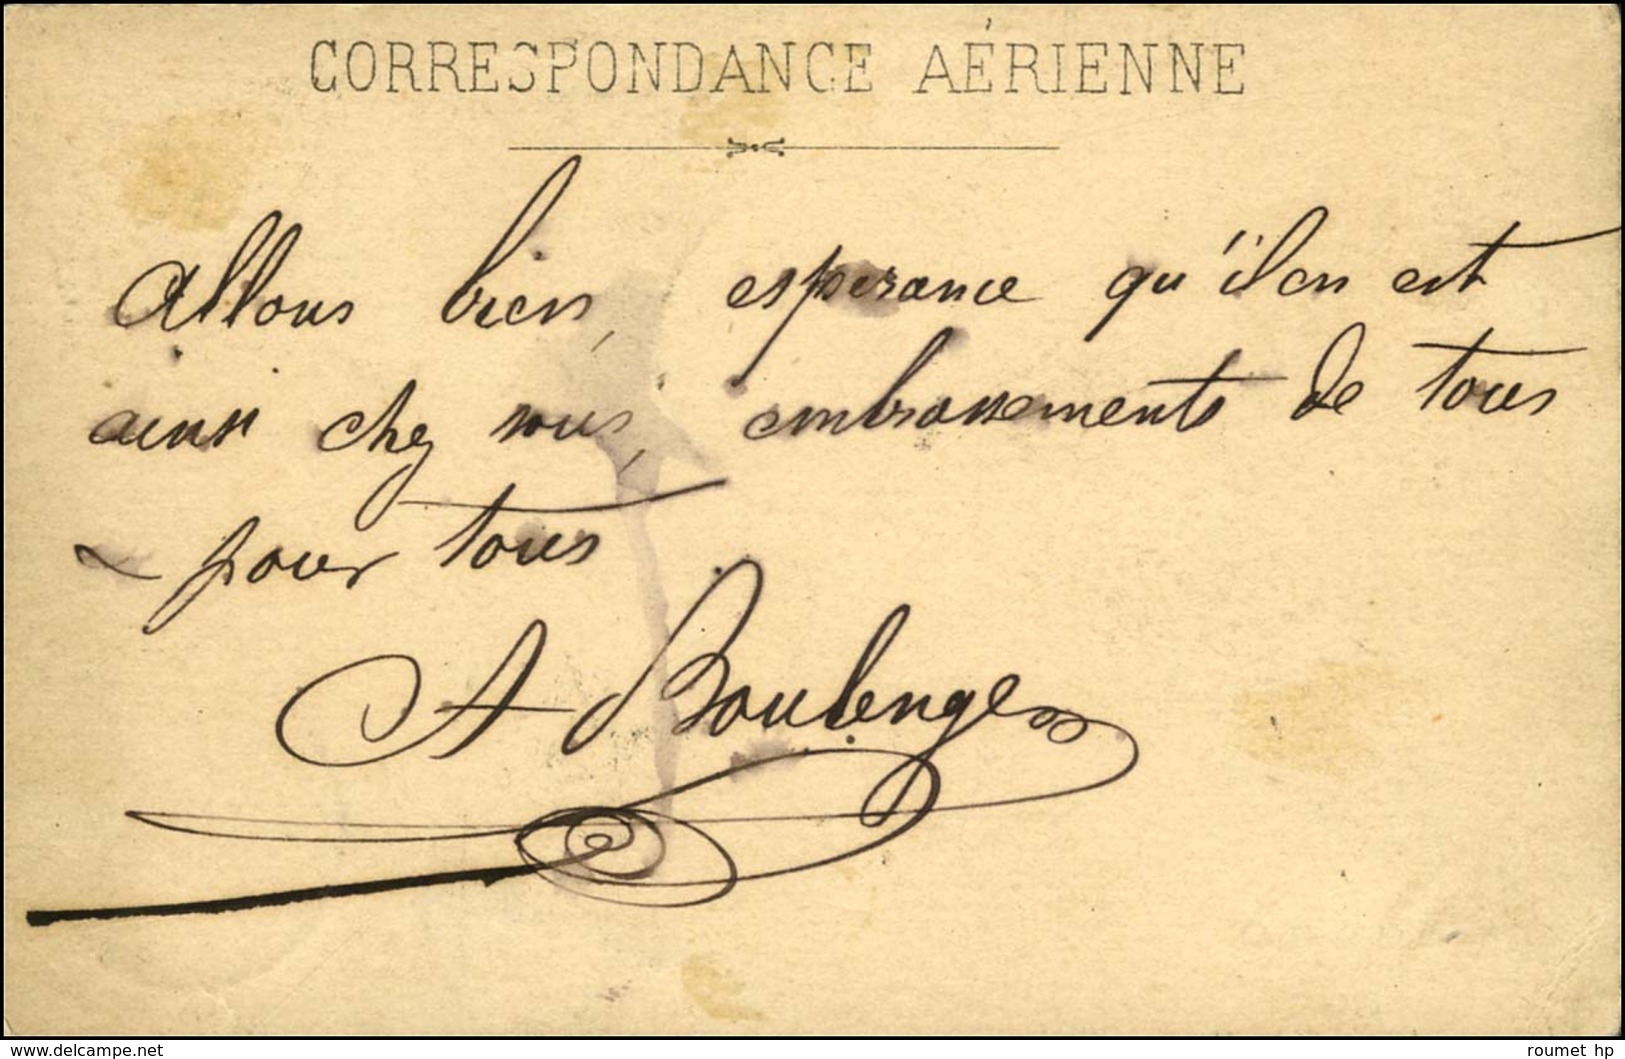 CORRESPONDANCE AÉRIENNE
Allons bien, esperance qu'il en est
ainsi chez vous, embrassements de tous
pour tous
A Boulenger
delcampe.net
roumet hp